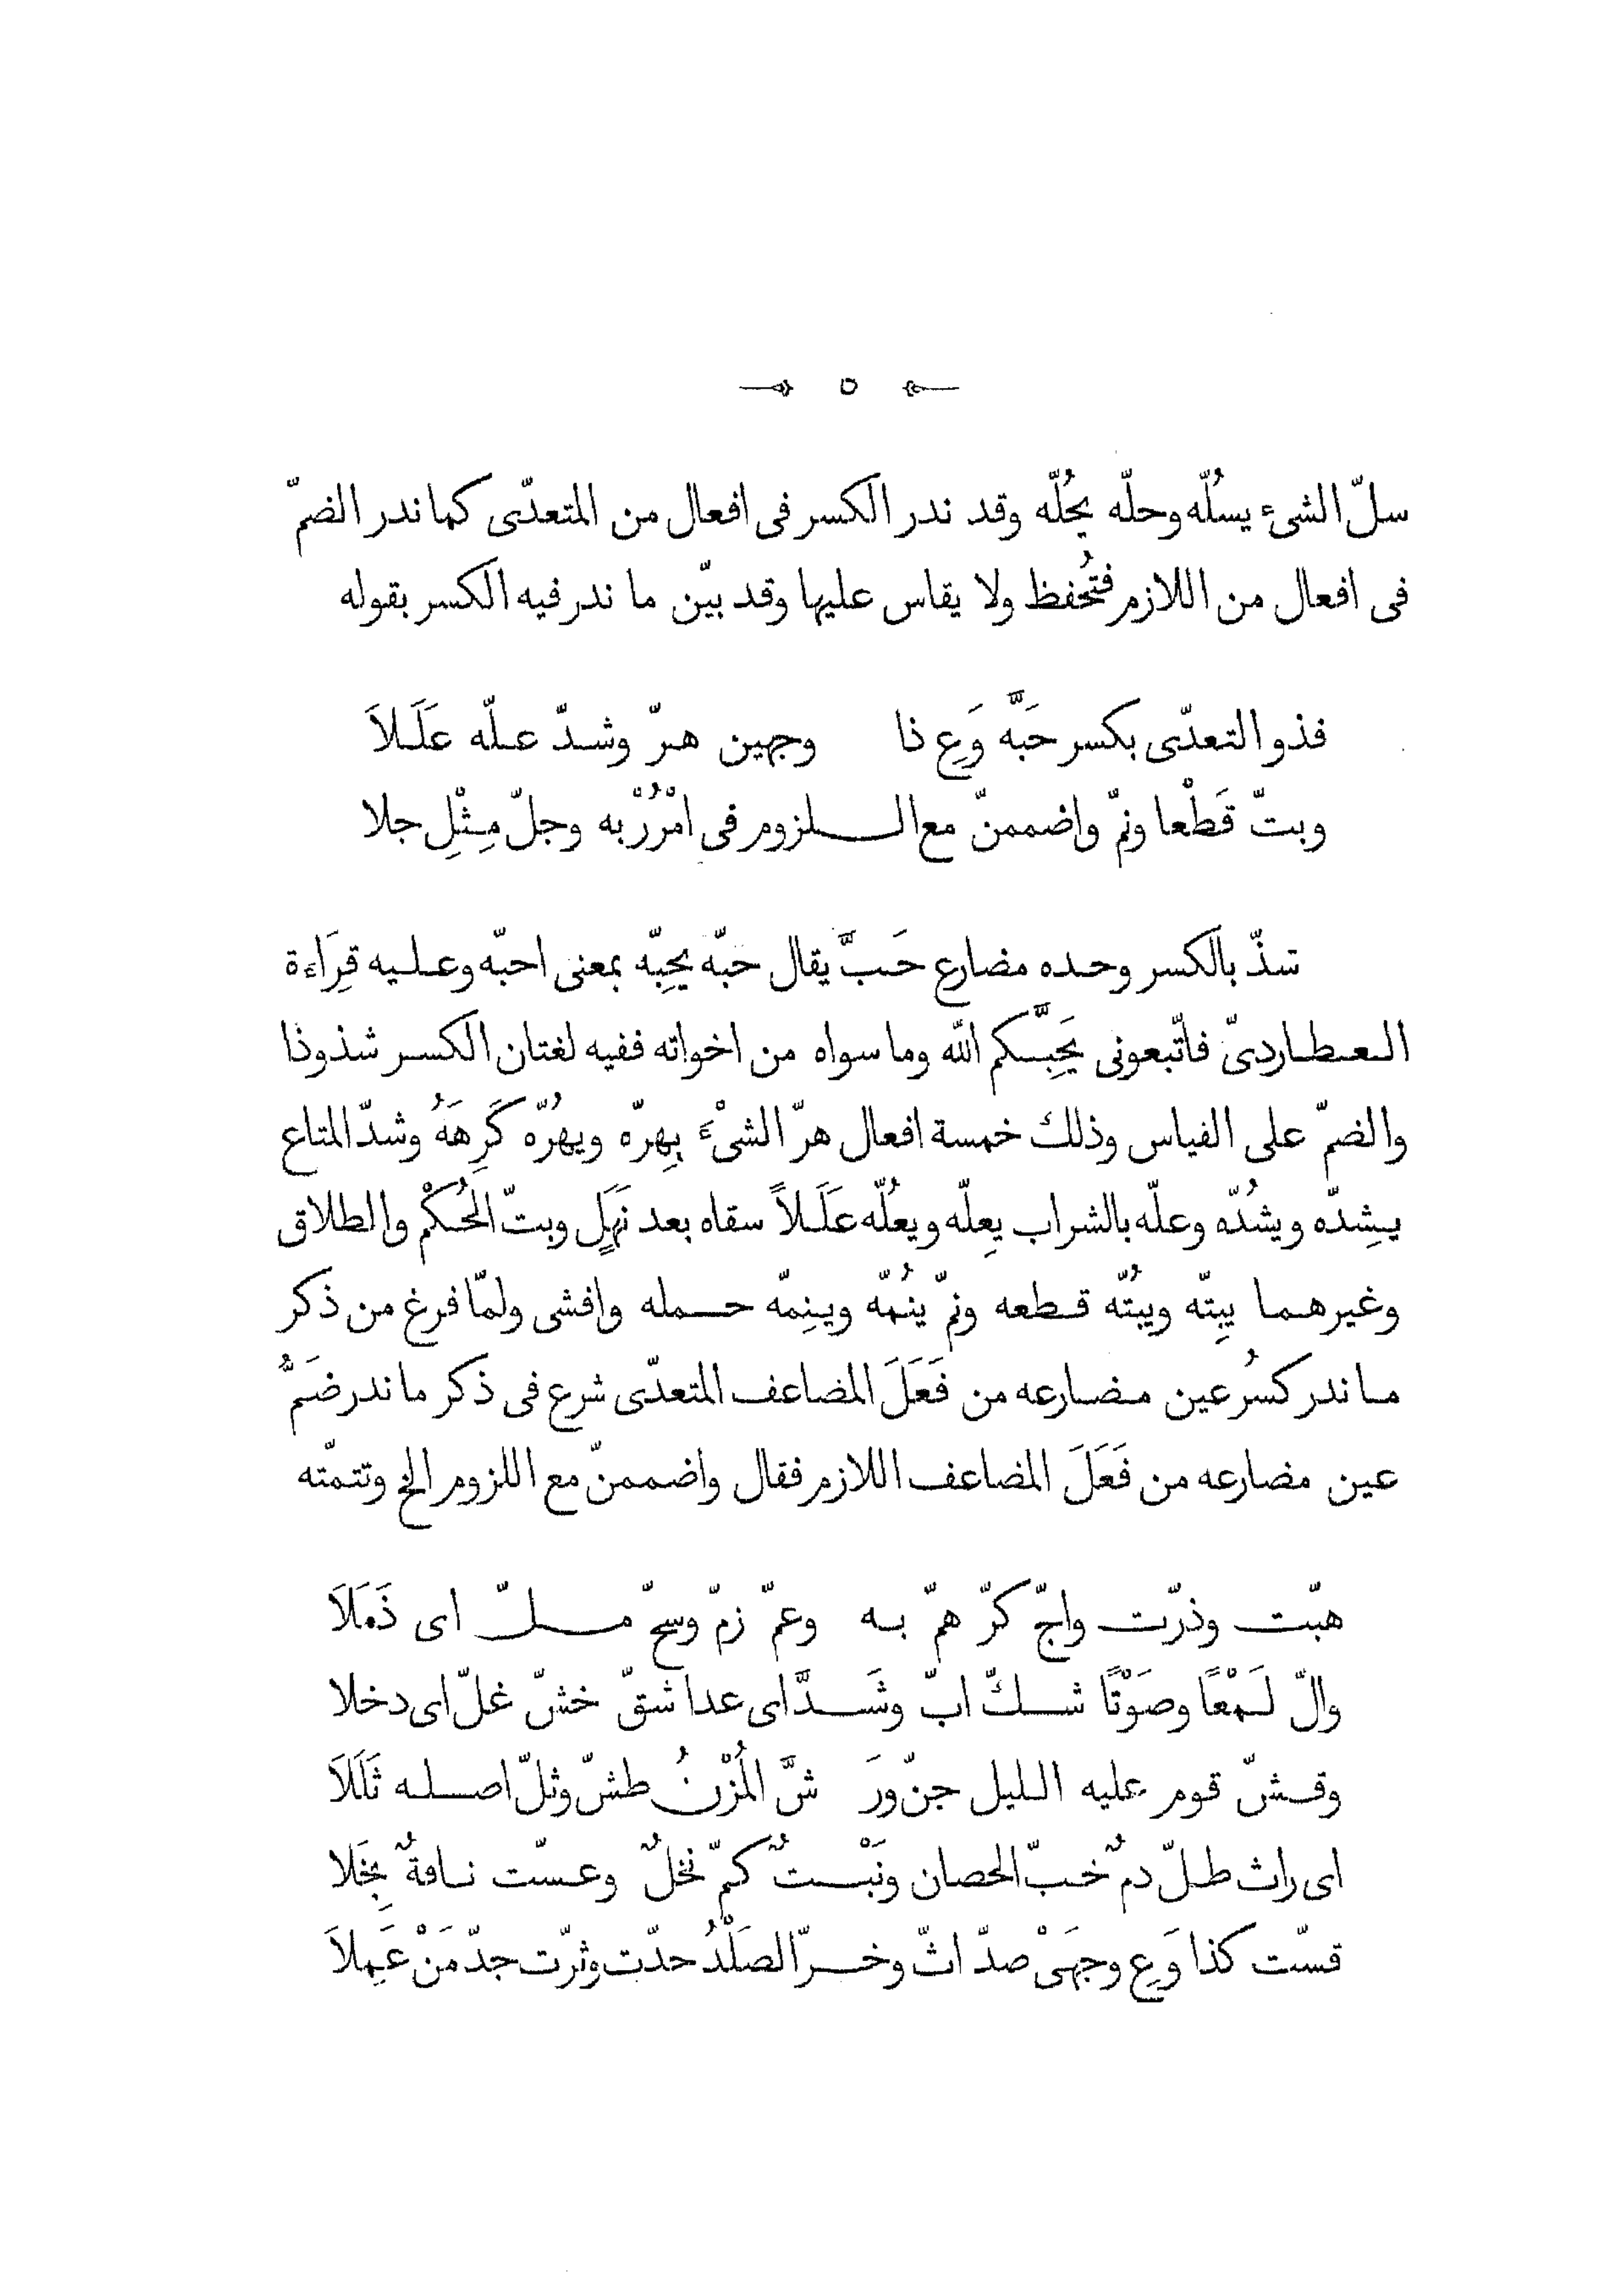 ٥
سلّ الشئ يسُلّه وحلّه يحُلّه وقد ندر الكسر فى افعال من المتعدّى كما ندر الضمّ
فى افعال من اللازم فتُحفظ ولا يقاس عليها وقد بيّن ما ندر فيه الكسر بقوله
فذو التعدّى بكسر حَبَّه وَعِ ذا وجهين هرّ وشدّ علّه عَلَلاَ
وبتّ قَطْعا ونمّ واضممنّ مع اللزوم فى امْرُرْ به وجلّ مِثْلِ جلا
تذّ بالكسر وحده مضارع حَبَّ يقال حبّه يحِبّه بمعنى احبّه وعليه قِرَاءة
العطاردىّ فاتّبعونى يَحِبَّكم الله وما سواه من اخواته ففيه لغتان الكسر شذوذا
والضمّ على القياس وذلك خمسة افعال هرّ الشئَْ يهِرّه ويهُرّه كَرِهَهُ وشدّ المتاع
يشِدّه ويشُدّه وعلّه بالشراب يعِلّه ويعُلّه عَلَلاً سقاه بعد نَهَلٍ وبتّ الحُكْم والطلاق
وغيرهما يبِتّه ويبُتّه قطعه ونمّ ينُمّه وينِمّه حمله وافشى ولمّا فرغ من ذكر
ما ندر كسرُ عين مضارعه من فَعَلَ المضاعف المتعدّى شرع فى ذكر ما ندر ضَمُّ
عين مضارعه من فَعَلَ المضاعف اللازم فقال واضممنّ مع اللزوم الخ وتتمّته
هبّت وذرّت واجّ كرّ همّ به وعمّ زمّ وسحّ ملّ اى ذَمَلَاَ
والّ لَمْعًا وصَوْتًا شكّ ابّ وشَدَّ اى عدا شقّ خشّ غلّ اى دخلا
وقشّ قوم عليه الليل جنّ ورَ شَّ المُزْنُ طشّ وثلّ اصله ثَلَلَاَ
اى راث طلّ دمٌ خبّ الحصان ونَبْتٌ كمّ نخلٌ وعسّت ناقةٌ بِخَلا
قسّت كذا وَعِ وجهَىْ صدّ اثّ وخرّ الصَلْدُ حدّت وثرّت جدّ مَنْ عَمِلاَ